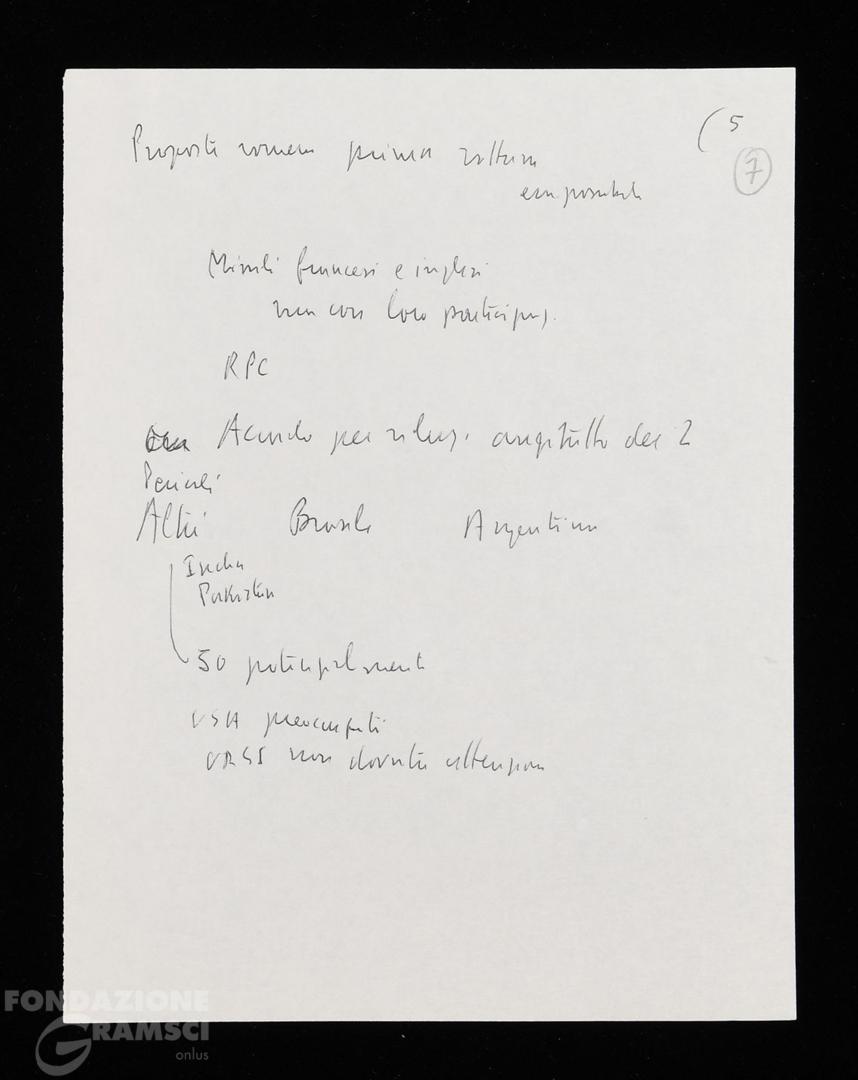 (5
7
Proposte romene prima rottura
era possibile
Missili francesi e inglesi
ma con loro partecipaz.
RPC
Accordo per riduz. anzitutto dei 2
Pericoli
Altri Brasile Argentina
India
Pakistan
50 potenzialmente
USA preoccupati
URSS non dovuta attenzione
FONDAZIONE
GRAMSCI
onlus